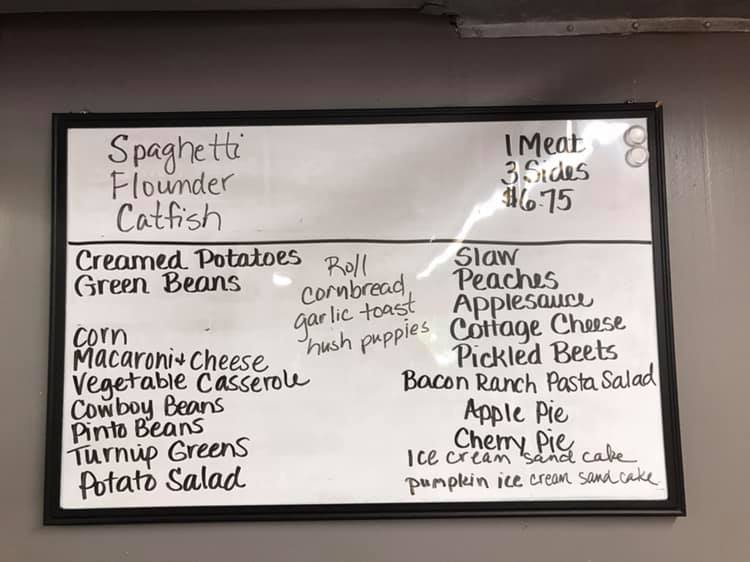 Spaghetti
Flounder
Catfish
1 Meat
3 Sides
$6.75
Creamed Potatoes
Green Beans
Corn
Macaroni + Cheese
Vegetable Casserole
Cowboy Beans
Pinto Beans
Turnip Greens
Potato Salad
Roll
cornbread
garlic toast
hush puppies
Slaw
Peaches
Applesauce
Cottage Cheese
Pickled Beets
Bacon Ranch Pasta Salad
Apple Pie
Cherry Pie
Ice cream sand cake
pumpkin ice cream sand cake